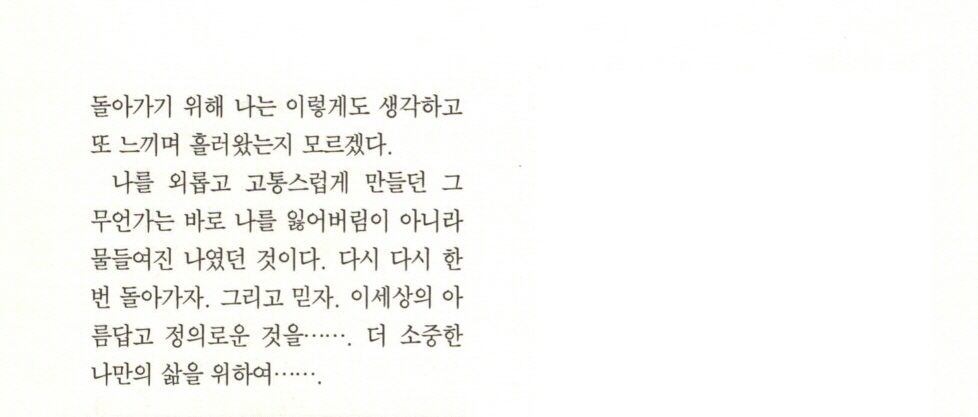 돌아가기 위해 나는 이렇게도 생각하고
또 느끼며 흘러왔는지 모르겠다.
나를 외롭고 고통스럽게 만들던 그
무언가는 바로 나를 잃어버림이 아니라
물들여진 나였던 것이다. 다시 다시 한
번 돌아가자. 그리고 믿자. 이세상의 아
름답고 정의로운 것을……. 더 소중한
나만의 삶을 위하여…….